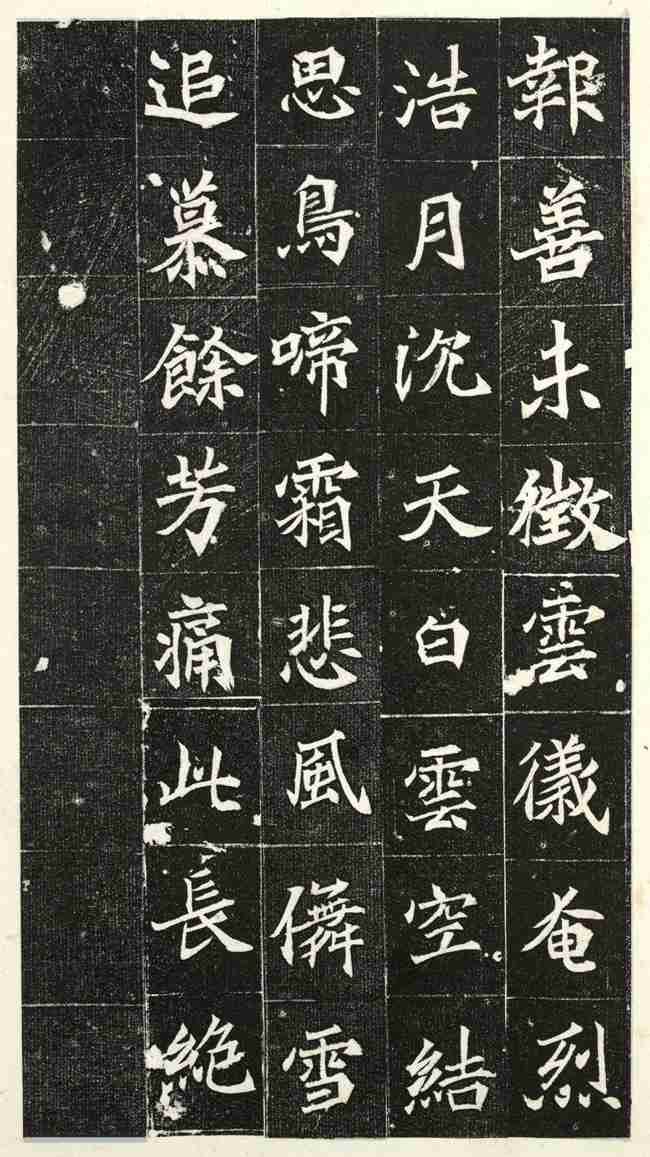 報善未徵雲儀奄烈
浩月沉天白雲空結
思鳥啼霜悲風儛雪
追慕餘芳痛此長絶